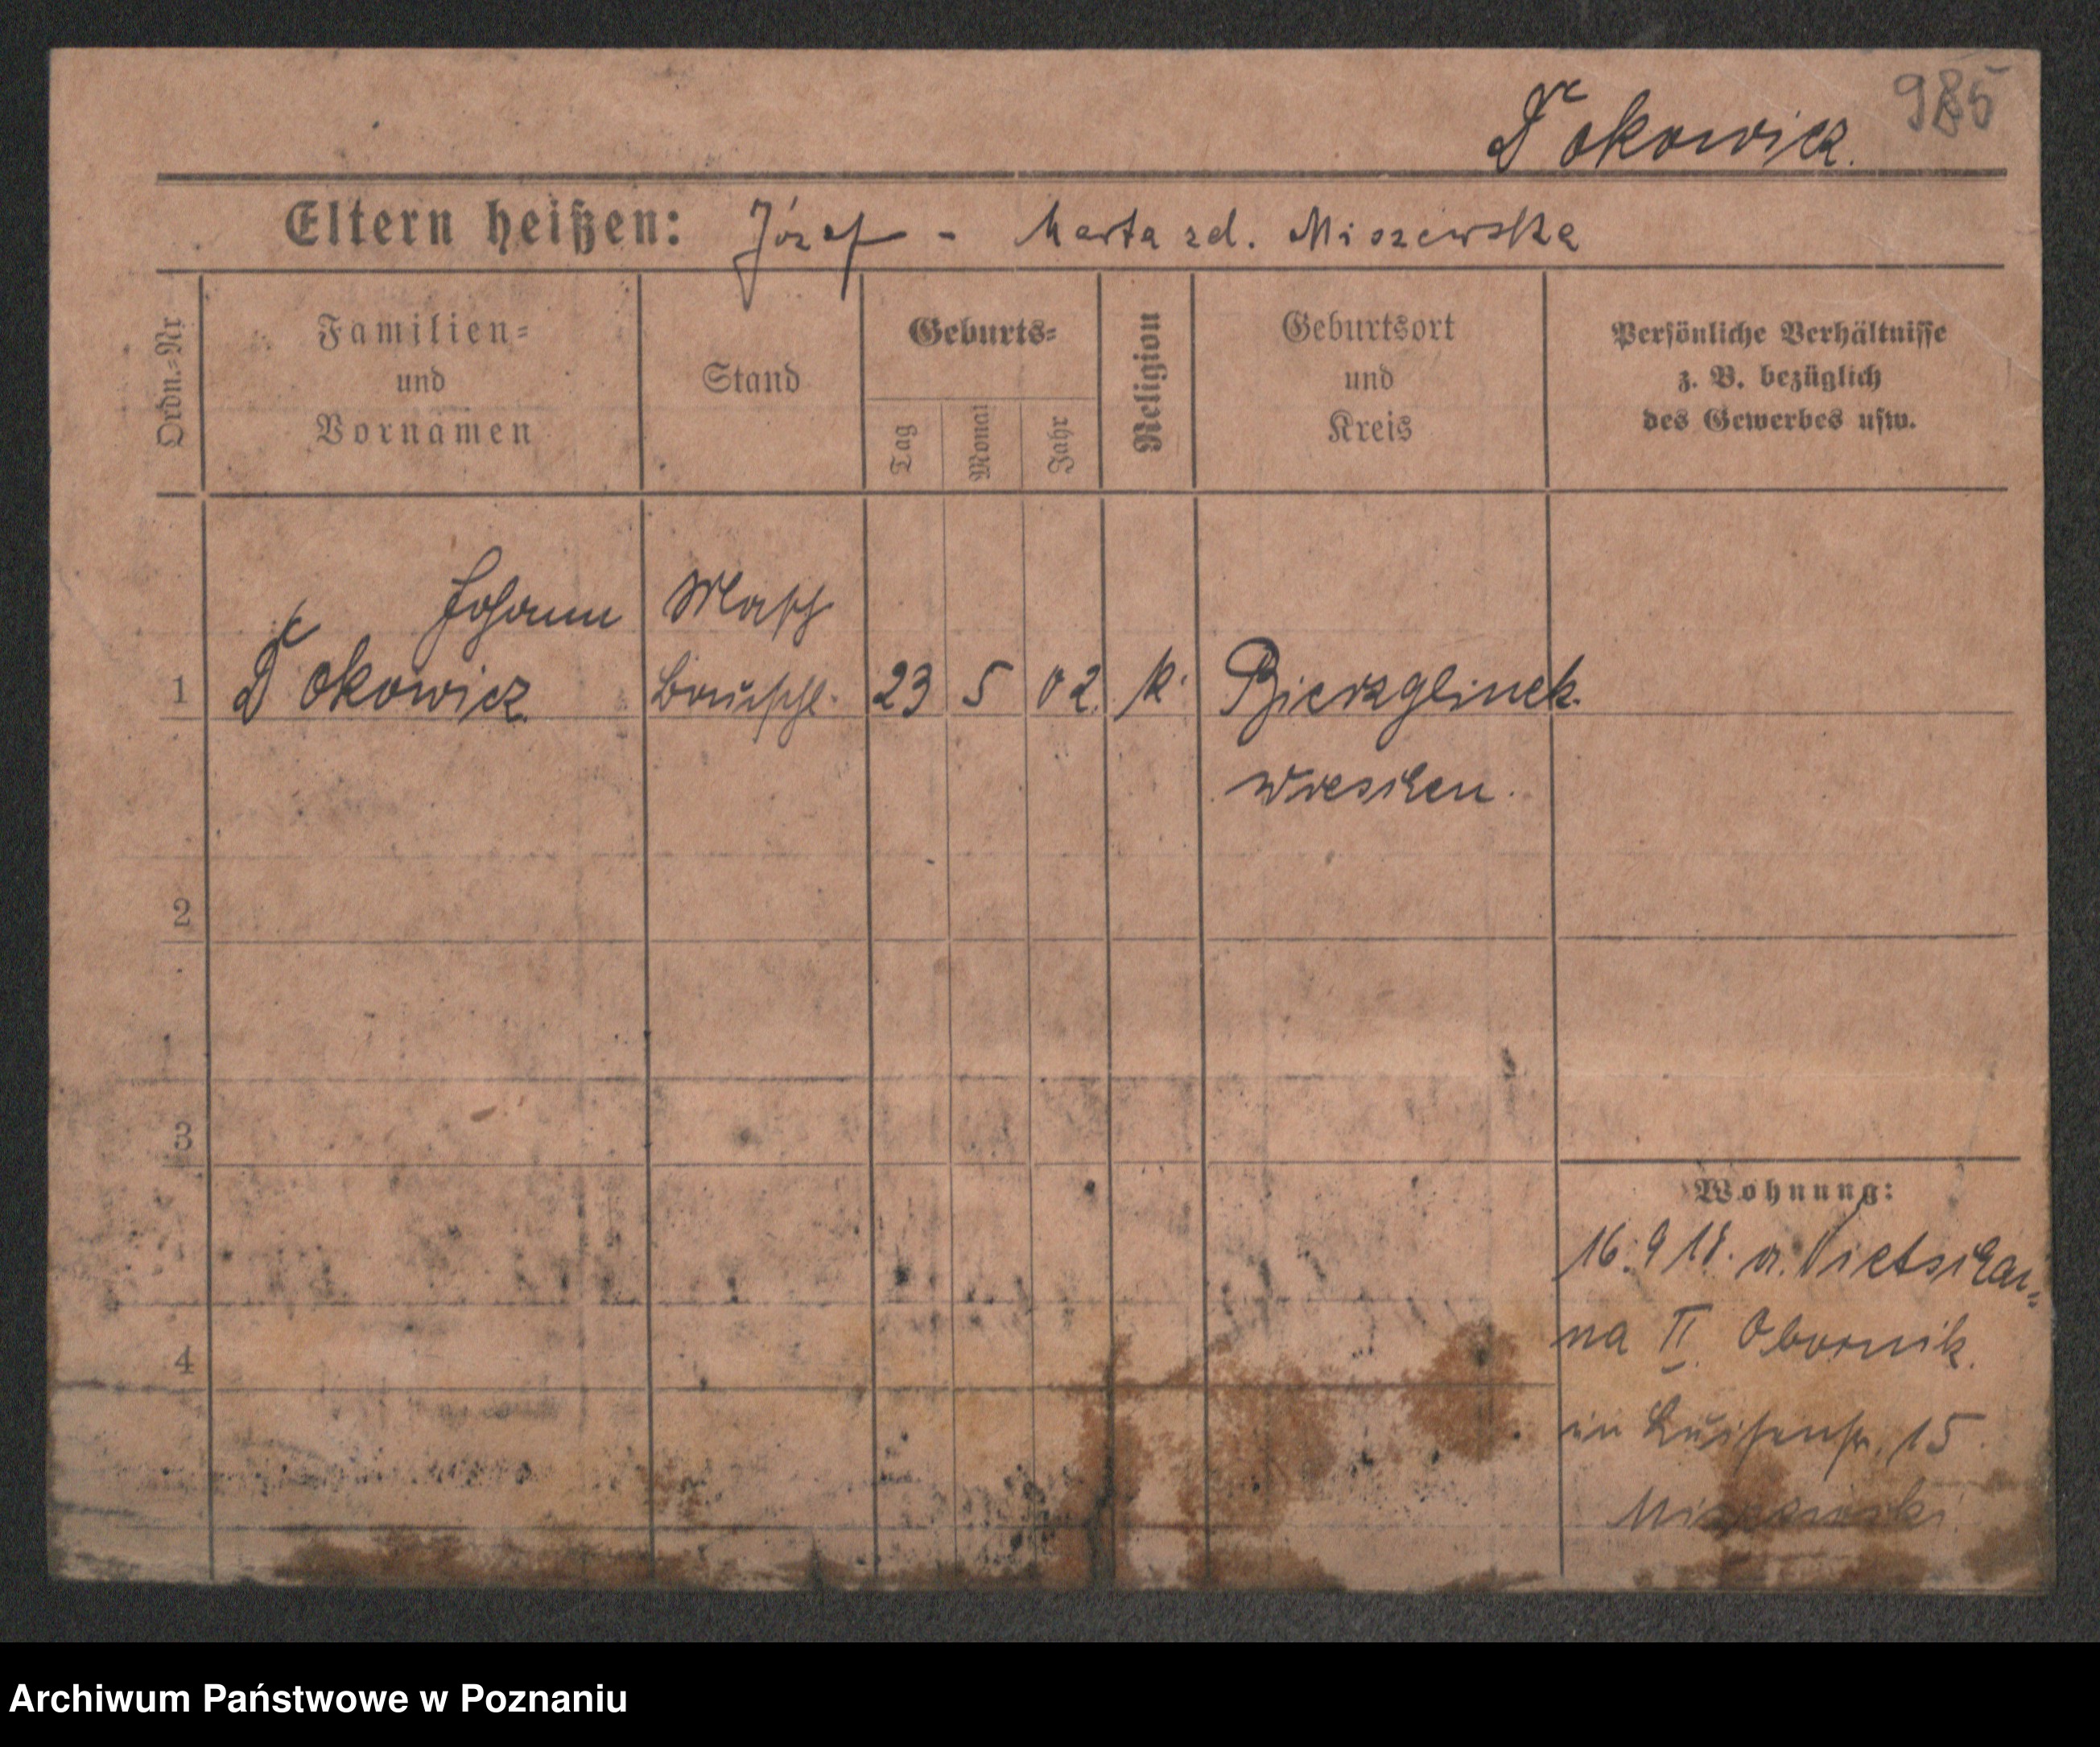 Tokowicz. 985
Eltern heißen: Józef - Marta zd. Miszewska
Ordn.=Nr
Familien=
und
Vornamen
Stand
Geburts=
Tag
Monat
Jahr
Religion
Geburtsort
und
Kreis
Persönliche Verhältnisse
z. B. bezüglich
des Gewerbes usw.
Johann Masch
1 Tokowicz 23 5 02. k. Bierzglinek.
Wreschen.
2
3
Wohnung:
16.9 18. a. Pietschar=
na II. Obornik.
4
in Luisenstr. 15
Archiwum Państwowe w Poznaniu